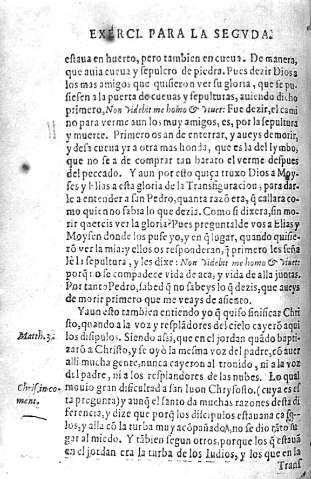 EXERCI. PARA LA SEGVDA.
estaua en huerto, pero tambien en cueua. De manera,
que auia cueua y sepulcro de piedra. Pues dezir Dios a
los mas amigos que quisieron ver su gloria, que se pu-
siesen a la puerta de cueuas y sepulturas, auiendo dicho
primero, Non videbit me homo & viuet: Fue dezir, el cami
no para verme aun los muy amigos, es, por la sepultura
y muerte. Primero os an de enterrar, y aueys de morir,
y desa cueua yr a otra mas honda, que es la del lymbo,
que no se a de comprar tan barato el verme despues
del peccado. Y aun por esto quiça truxo Dios a Moy-
ses y Elias a esta gloria de la Transfiguracion, para dar-
le a entender a san Pedro, quanta razõ era, q̃ callara co-
mo quien no sabia lo que dezia. Como si dixera, sin mo-
rir quereis ver la gloria? Pues preguntalde vos a Elias y
Moysen donde los puse yo, y en q̃ lugar, quando quisie-
rõ ver la mia: y ellos os responderan, q̃ primero les señа
lè la sepultura, y les dixe: Non videbit me homo & viuet:
porq̃ no se compadece vida de aca, y vida de alla juntas.
Por tanto Pedro, sabed q̃ no sabeys lo q̃ dezis, que aueys
de morir primero que me veays de asiento.
Y aun esto tambien entiendo yo q̃ quiso sinificar Chri
sto, quando a la voz y resplãdores del cielo cayerõ aqui
los disipulos. Siendo asi, que en el jordan quãdo bapti-
Matth. 3.
zarõ a Christo, y se oyò la mesma voz del padre, cõ auer
alli mucha gente, nunca cayeron al tronido, ni a la voz
del padre, ni a los resplandores de las nubes. Lo qual
Chris. in co-
ment.
mouio gran dificultad a san Iuon Chrysosto. (cuya es esta
ta pregunta) y aunq̃ el santo da muchas razones desta di
ferencia, y dize que porq̃ los discipulos estauana co so-
los, y alla cõ la turba muy acopañado A, no se dio tãto su
gar al miedo. Y tãbien segun otros, porque los q̃ estauã
en el jordan era la turba de los Iudios, y los que en la
Trans